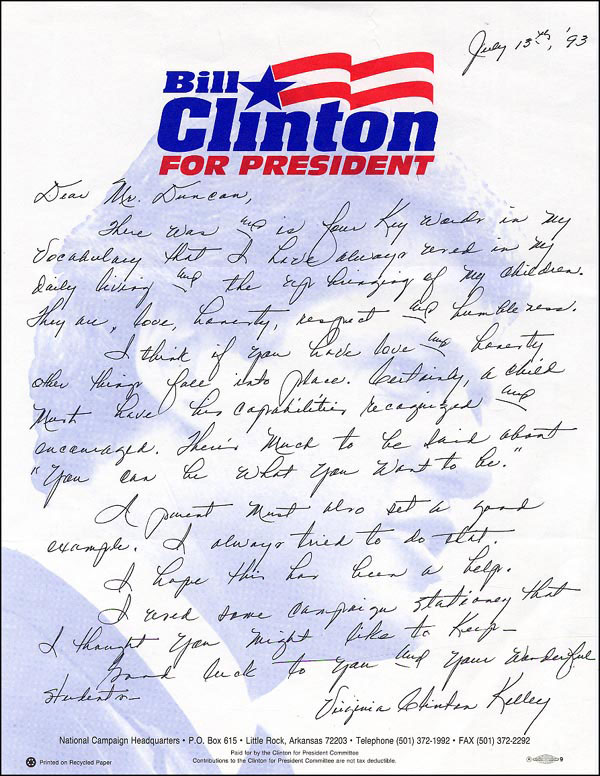 July 13th, '93
Bill
Clinton
FOR PRESIDENT
Dear Mr. Duncan,
There was and is four Key words in my
Vocabulary that I have always used in my
daily living and the up bringing of my children.
They are, love, honesty, respect and humbleness.
I think if you have love and honesty
other things face into place. Certainly, a child
Must have his capabilities recognized and
encouraged. There's Much to be said about
"You can be what you want to be."
A parent must also set a good
example. I always tried to do that.
I hope this has been a help.
I used some campaign stationey that
I thought you might like to Keep-
Good luck to you and your wonderful
students-
Virginia Clinton Kelley
National Campaign Headquarters • P.O. Box 615 • Little Rock, Arkansas 72203 • Telephone (501) 372-1992 • FAX (501) 372-2292
Paid for by the Clinton for President Committee
Printed on Recycled Paper
Contributions to the Clinton for President Committee are not tax deductible.
9